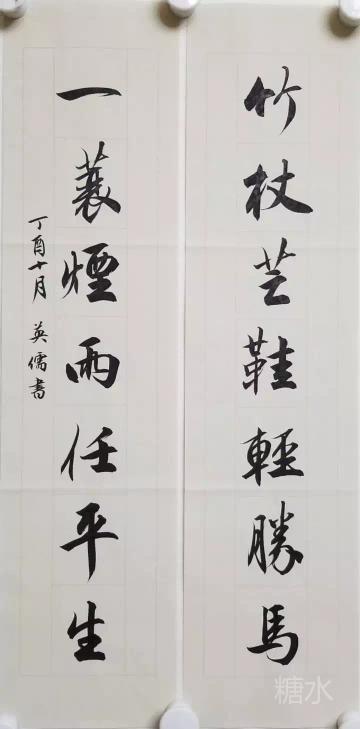 竹杖芒鞋輕勝馬
一蓑煙雨任平生
丁酉十月 英儒書
糖水